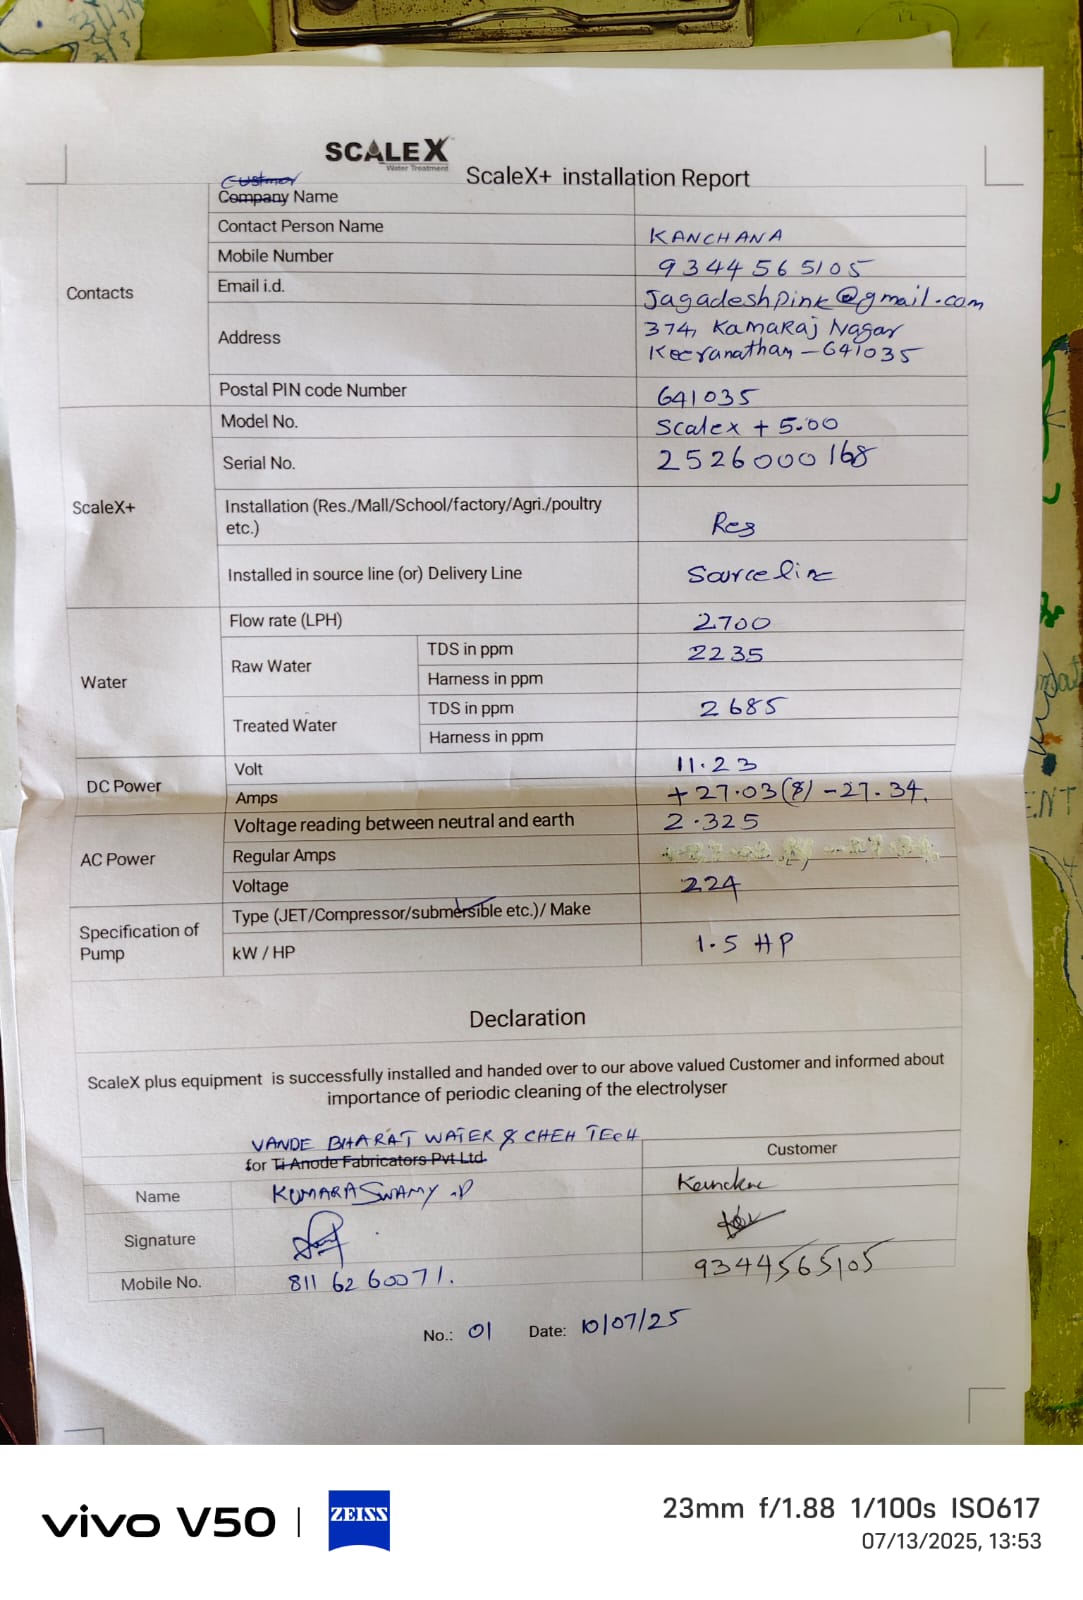 SCALEX
Water Treatment
ScaleX+ installation Report
Custmor
Company Name
Contact Person Name KANCHANA
Mobile Number 9344565105
Contacts
Email i.d. Jagadeshpink@gmail.com
Address 374, Kamaraj Nagar
Keeranatham - 641035
Postal PIN code Number 641035
Model No. Scalex + 5.00
Serial No. 2526000168
ScaleX+
Installation (Res./Mall/School/factory/Agri./poultry
etc.) Res
Installed in source line (or) Delivery Line Source line
Flow rate (LPH) 2700
Water
Raw Water
TDS in ppm 2235
Harness in ppm
Treated Water
TDS in ppm 2685
Harness in ppm
DC Power
Volt 11.23
Amps +27.03(8) -27.34.
AC Power
Voltage reading between neutral and earth 2.325
Regular Amps
Voltage 224
Specification of
Pump
Type (JET/Compressor/submersible etc.)/ Make
kW / HP 1.5 HP
Declaration
ScaleX plus equipment is successfully installed and handed over to our above valued Customer and informed about
importance of periodic cleaning of the electrolyser
VANDE BHARAT WATER & CHEH TECH
for Ti Anode Fabricators Pvt Ltd.
Customer
Name KUMARASWAMY .P
Signature
Mobile No. 811 62 60071. 9344565105
No.: 01 Date: 10/07/25
vivo V50 | ZEISS
23mm f/1.88 1/100s ISO617
07/13/2025, 13:53